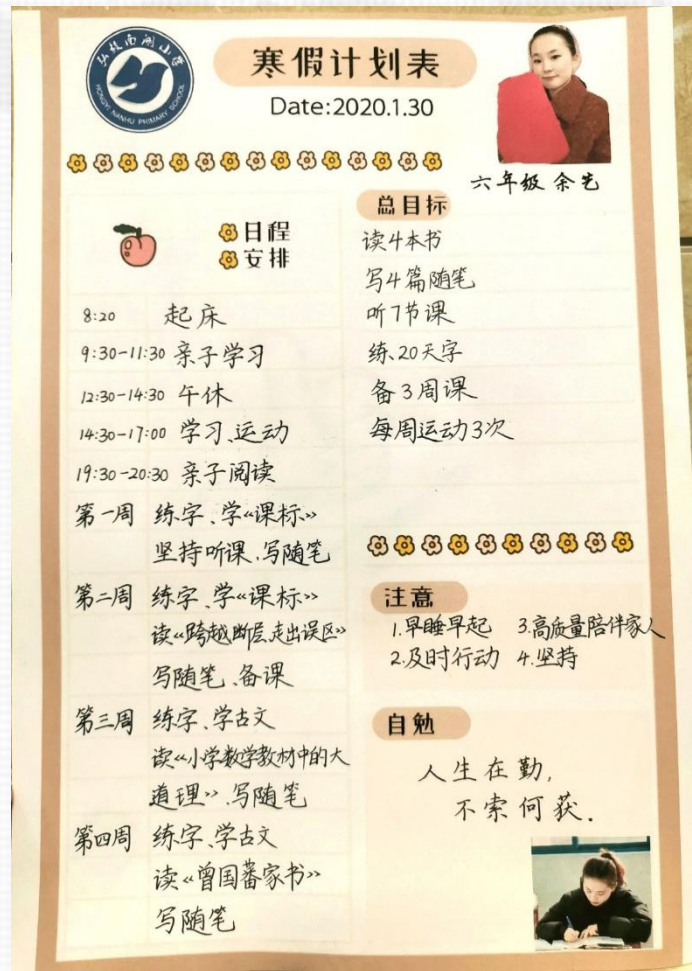 弘毅南湖小学
HONGYI NANHU PRIMARY SCHOOL
寒假计划表
Date:2020.1.30
六年级 余艺
日程
安排
8:20 起床
9:30-11:30 亲子学习
12:30-14:30 午休
14:30-17:00 学习、运动
19:30-20:30 亲子阅读
第一周 练字、学《课标》
坚持听课、写随笔
第二周 练字、学《课标》
读《跨越断层,走出误区》
写随笔、备课
第三周 练字、学古文
读《小学数学教材中的大
道理》、写随笔
第四周 练字、学古文
读《曾国蕃家书》
写随笔
总目标
读4本书
写4篇随笔
听7节课
练20天字
备3周课
每周运动3次
注意
1.早睡早起 3.高质量陪伴家人
2.及时行动 4.坚持
自勉
人生在勤,
不索何获.